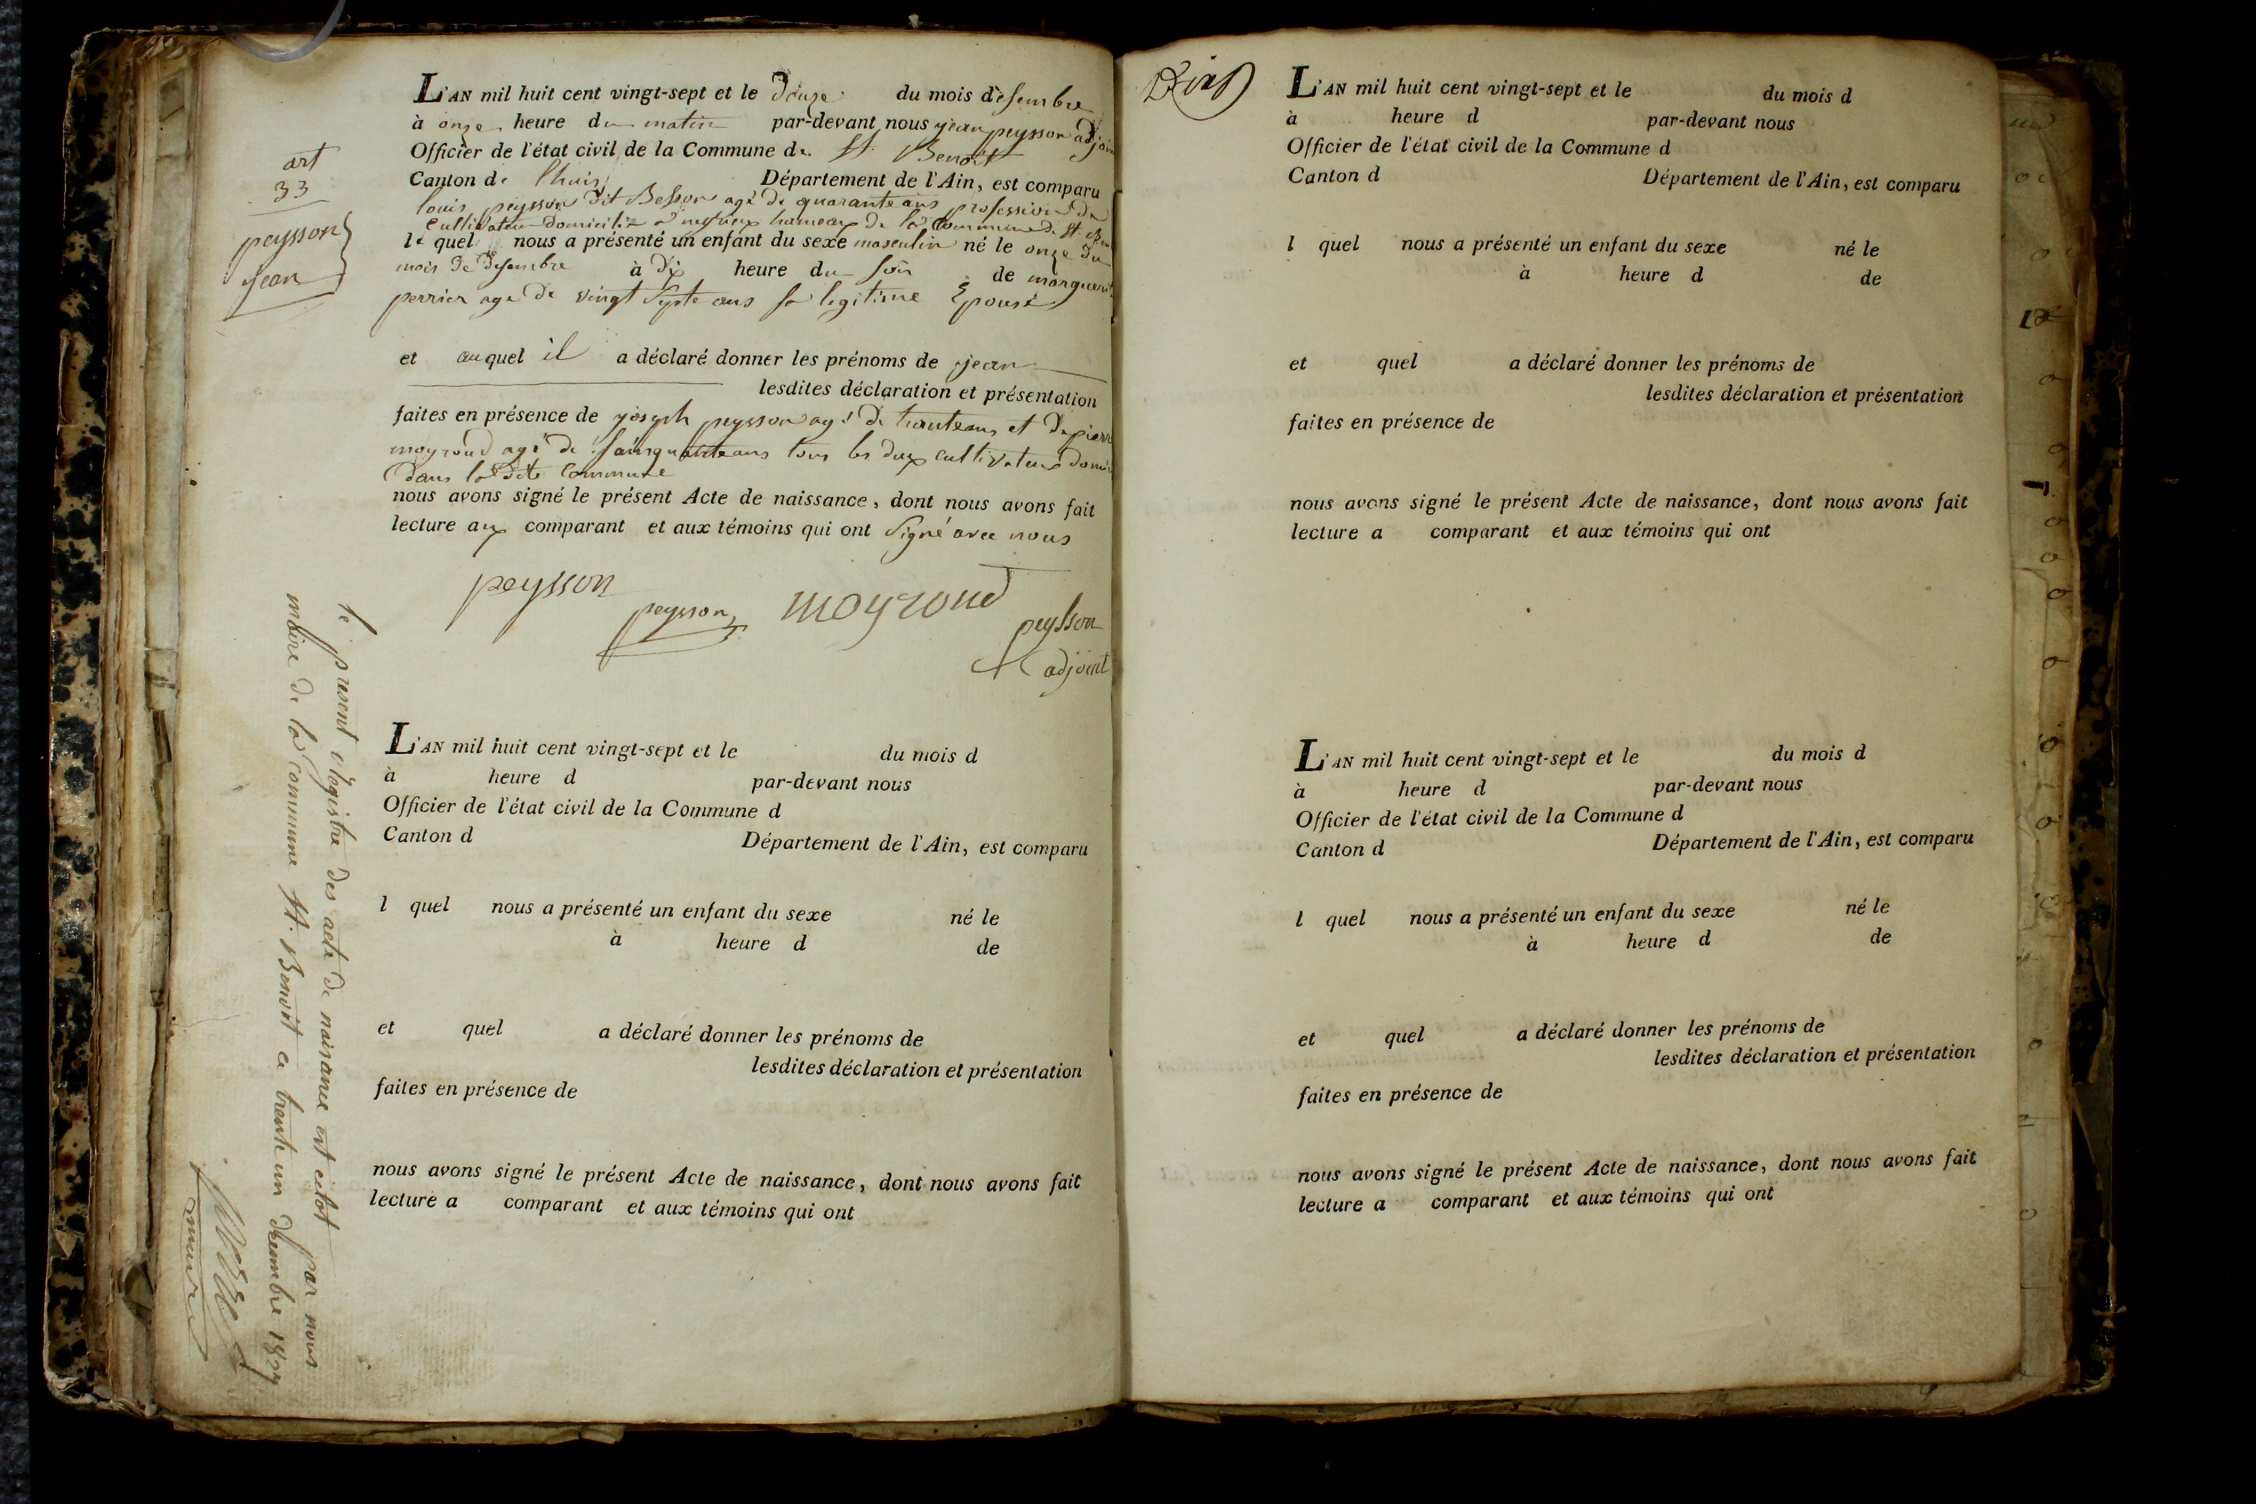 art
33
peysson
jean
L'AN mil huit cent vingt-sept et le douze du mois desembre
à onze heure du matin par-devant nous jean peysson adjoin
Officier de l'état civil de la Commune de St. Benoit
Canton de lhuis Département de l'Ain, est comparu
louis peysson dit Besson agé de quarante ans profession de
Cultivateur domicilié a hameau de la Commune de St Ben
le quel nous a présenté un enfant du sexe masculin né le onze du
mois de desembre à dix heure du soir de marguerit
perrier age de vingt septe ans sa legitime Epouse
et auquel il a déclaré donner les prénoms de jean
lesdites déclaration et présentation
faites en présence de joseph peysson agé de trente ans et de pierr
moyroud agé de sainquante ans tous les dux cultivateurs domi
dans la dite Commune
nous avons signé le présent Acte de naissance, dont nous avons fait
lecture aux comparant et aux témoins qui ont Signé avec nous
peysson
peysson
moyroud
peysson
adjoint
L'AN mil huit cent vingt-sept et le du mois d
à heure d par-devant nous
Officier de l'état civil de la Commune d
Canton d Département de l'Ain, est comparu
l quel nous a présenté un enfant du sexe né le
à heure d de
et quel a déclaré donner les prénoms de
lesdites déclaration et présentation
faites en présence de
nous avons signé le présent Acte de naissance, dont nous avons fait
lecture a comparant et aux témoins qui ont
le present Registre des acte de naisance est clot par nous
maire de la commune St. Benoit ce trente un desembre 1827
maire
L'AN mil huit cent vingt-sept et le du mois d
à heure d par-devant nous
Officier de l'état civil de la Commune d
Canton d Département de l'Ain, est comparu
l quel nous a présenté un enfant du sexe né le
à heure d de
et quel a déclaré donner les prénoms de
lesdites déclaration et présentation
faites en présence de
nous avons signé le présent Acte de naissance, dont nous avons fait
lecture a comparant et aux témoins qui ont
L'AN mil huit cent vingt-sept et le du mois d
à heure d par-devant nous
Officier de l'état civil de la Commune d
Canton d Département de l'Ain, est comparu
l quel nous a présenté un enfant du sexe né le
à heure d de
et quel a déclaré donner les prénoms de
lesdites déclaration et présentation
faites en présence de
nous avons signé le présent Acte de naissance, dont nous avons fait
lecture a comparant et aux témoins qui ont